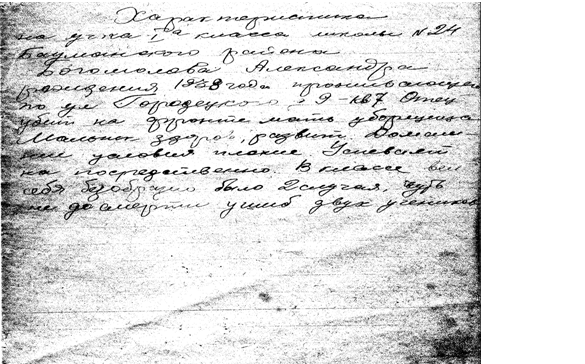 Характеристика
на уч-ка I го класса школы №24
Бауманского района
Богомолова Александра
рождения 1938 года проживающего
по ул Городецкого 9-кв7 Отец
убит на фронте мать уборщица
Мальчик здоров, развит. Домаш-
ние условия плохие Успевает
на посредственно. В классе вел
себя безобразно было 2 случая, чуть
не до смерти ушиб двух учеников